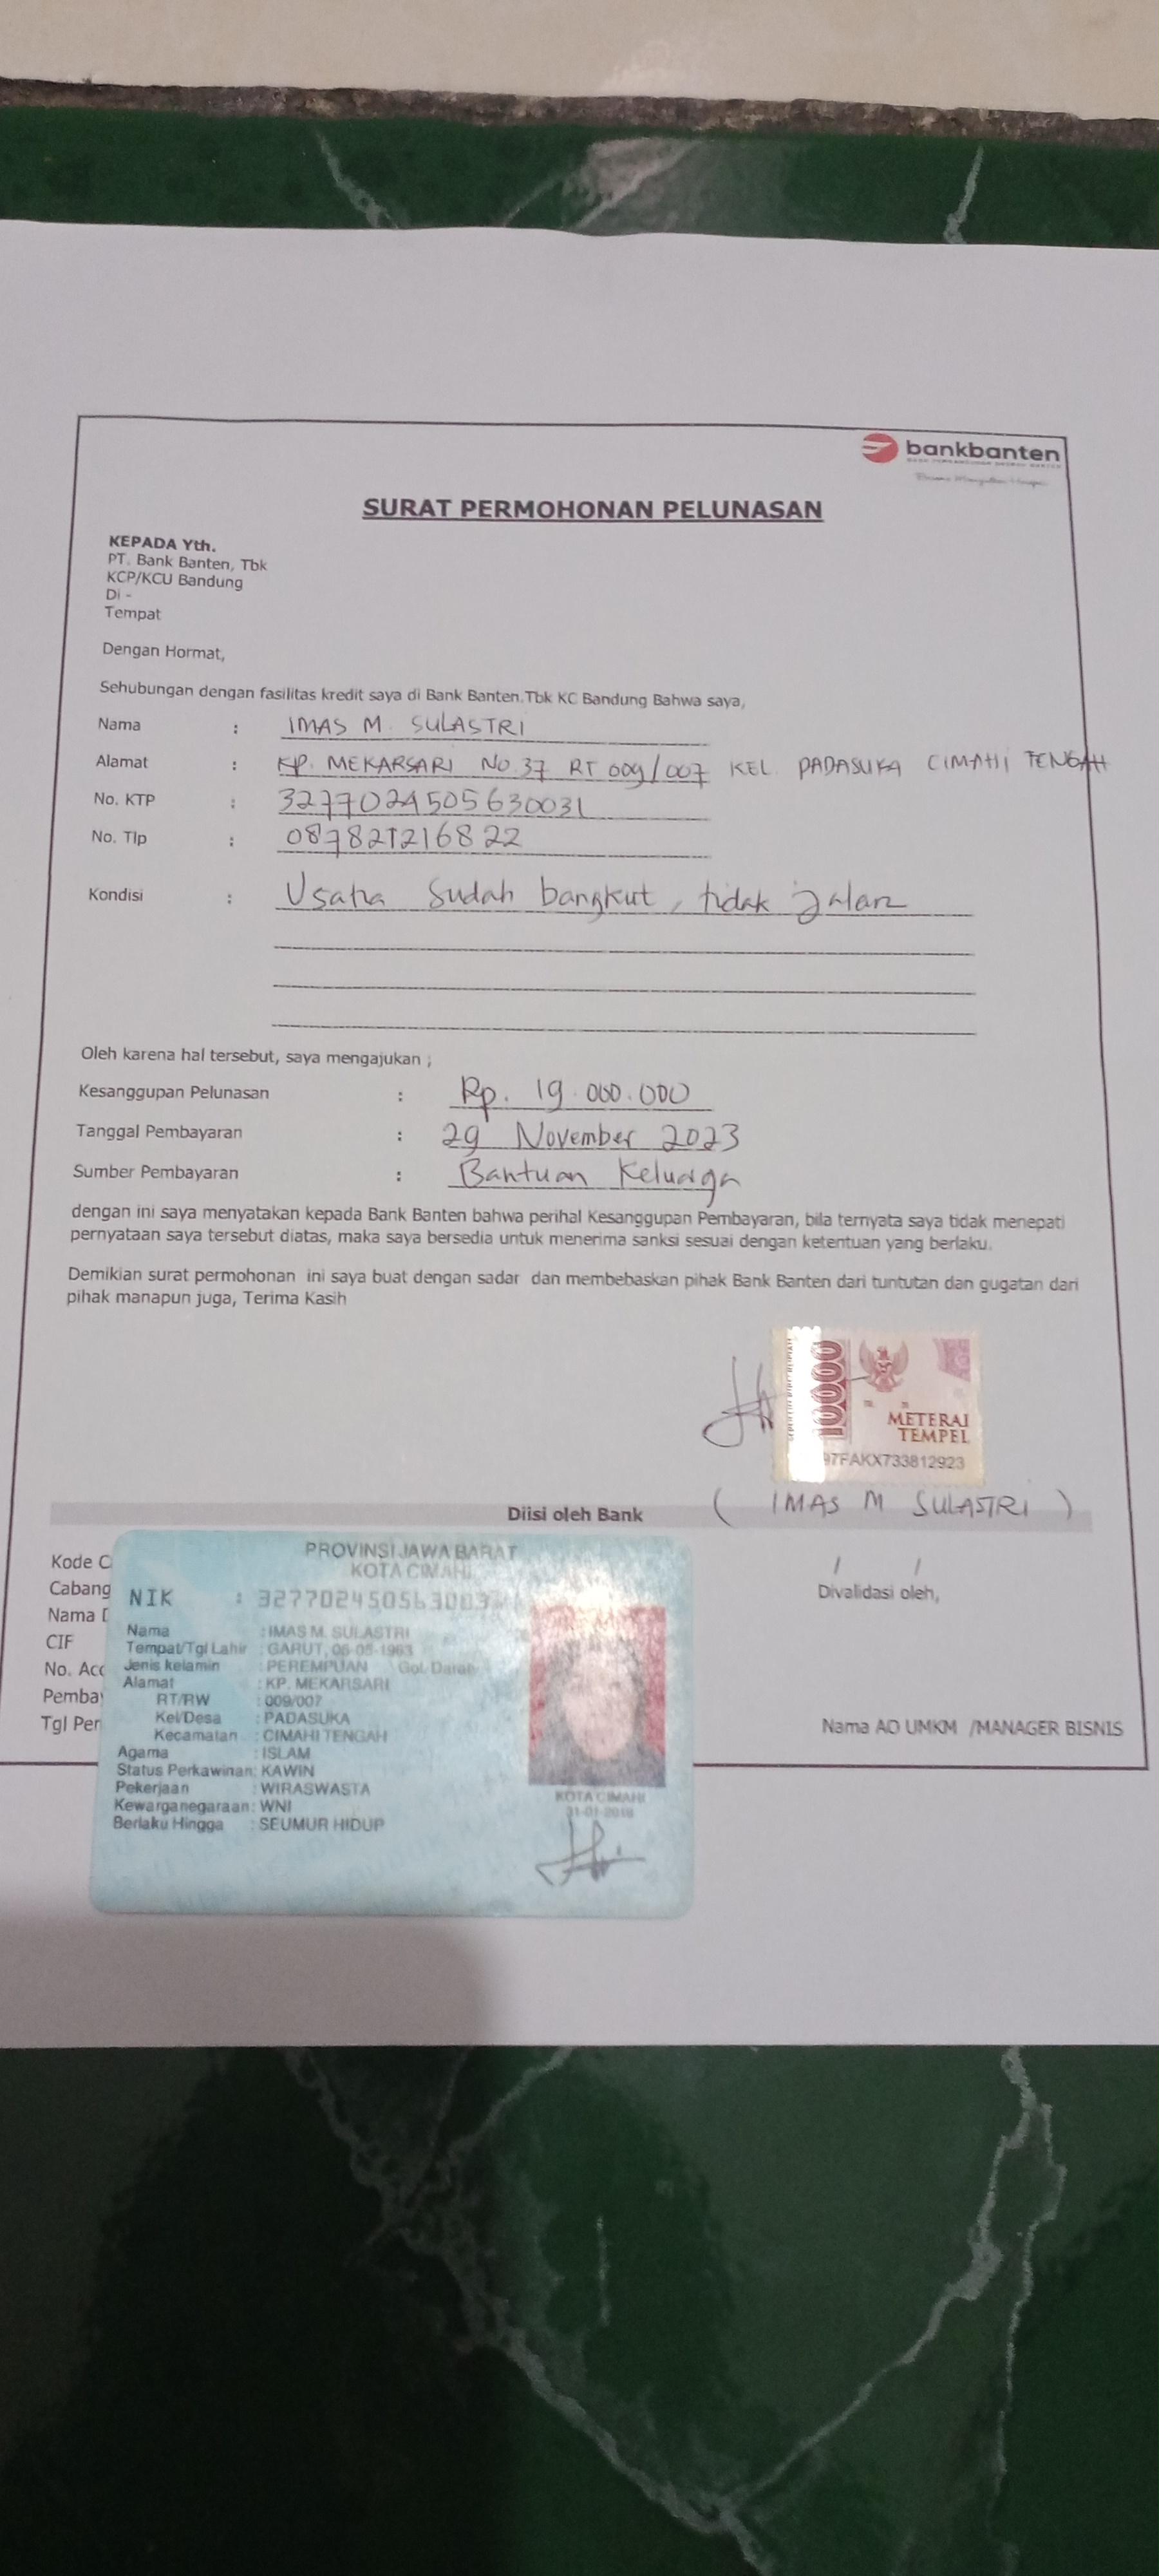 bankbanten
SURAT PERMOHONAN PELUNASAN
KEPADA Yth.
PT. Bank Banten, Tbk
KCP/KCU Bandung
Di -
Tempat
Dengan Hormat,
Sehubungan dengan fasilitas kredit saya di Bank Banten.Tbk KC Bandung Bahwa saya,
Nama : IMAS M. SULASTRI
Alamat : KP. MEKARSARI NO.37 RT 009/007 KEL. PADASUKA CIMAHI TENGAH
No. KTP : 3277024505630031
No. Tlp : 087821216822
Kondisi : Usaha sudah bangkut, tidak jalan
Oleh karena hal tersebut, saya mengajukan ;
Kesanggupan Pelunasan : Rp. 19.000.000
Tanggal Pembayaran : 29 November 2023
Sumber Pembayaran : Bantuan Keluarga
dengan ini saya menyatakan kepada Bank Banten bahwa perihal Kesanggupan Pembayaran, bila ternyata saya tidak menepati
pernyataan saya tersebut diatas, maka saya bersedia untuk menerima sanksi sesuai dengan ketentuan yang berlaku.
Demikian surat permohonan ini saya buat dengan sadar dan membebaskan pihak Bank Banten dari tuntutan dan gugatan dari
pihak manapun juga, Terima Kasih
10000
METERAI
TEMPEL
97FAKX733812923
( IMAS M SULASTRI )
Diisi oleh Bank
Kode C
Cabang
Nama D
CIF
No. Acc
Pemba
Tgl Per
/ /
Divalidasi oleh,
Nama AO UMKM /MANAGER BISNIS
PROVINSI JAWA BARAT
KOTA CIMAHI
NIK : 327702450563003
Nama : IMAS M. SULASTRI
Tempat/Tgl Lahir : GARUT, 05-05-1963
Jenis kelamin : PEREMPUAN Gol. Darah
Alamat : KP. MEKARSARI
RT/RW : 009/007
Kel/Desa : PADASUKA
Kecamatan : CIMAHI TENGAH
Agama : ISLAM
Status Perkawinan: KAWIN
Pekerjaan : WIRASWASTA
Kewarganegaraan: WNI
Berlaku Hingga : SEUMUR HIDUP
KOTA CIMAHI
31-01-2018